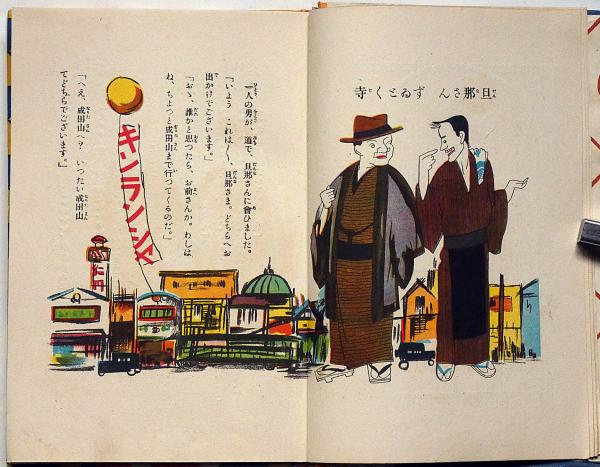 旦那さん ずゐとく寺
一人の男が、道で、旦那さんに會ひました。
「いよう これは〳〵、旦那さま。どちらへお
出かけでございます。」
「おゝ、誰かと思つたら、お前さんか。わしは
ね、ちよつと成田山まで行つてくるのだ。」
「へえ、成田山へ? いつたい成田山
てどちらでございます。」
キンランシャ